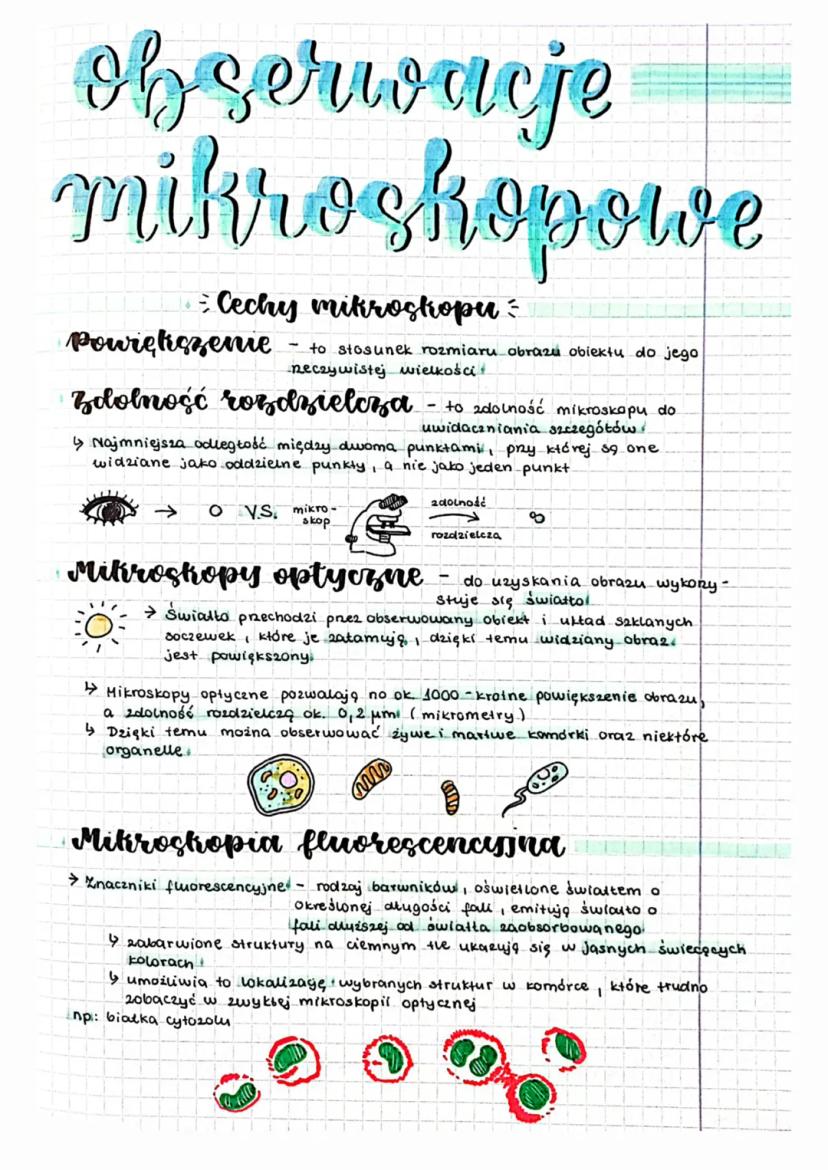 obserwacje
mikroskopowe
Cechy mikroskopu
Powiększenie - to stosunek rozmiaru obrazu obiektu do jego
rzeczywistej wielkości
Zdolność rozdzielcza - to zdolność mikroskopu do
uwidaczniania szczegółów
↳ Najmniejsza odległość między dwoma punktami, przy której są one
widziane jako oddzielne punkty, a nie jako jeden punkt
→ O V.S. mikro-
skop
zdolność
rozdzielcza
Mikroskopy optyczne - do uzyskania obrazu wykorzy-
stuje się światło
→ Światło przechodzi przez obserwowany obiekt i układ szklanych
soczewek, które je załamują, dzięki temu widziany obraz
jest powiększony
↳ Mikroskopy optyczne pozwalają na ok. 1000-krotne powiększenie obrazu,
a zdolność rozdzielczą ok. 0,2 µm (mikrometry)
↳ Dzięki temu można obserwować żywe i martwe komórki oraz niektóre
organelle
Mikroskopia fluorescencyjna
→ Znaczniki fluorescencyjne - rodzaj barwników, oświetlone światłem o
określonej długości fali, emitują światło o
fali dłuższej od światła zaabsorbowanego
↳ zabarwione struktury na ciemnym tle ukazują się w jasnych świecących
kolorach
↳ umożliwia to lokalizację wybranych struktur w komórce, które trudno
zobaczyć w zwykłej mikroskopii optycznej
np: białka cytozolu